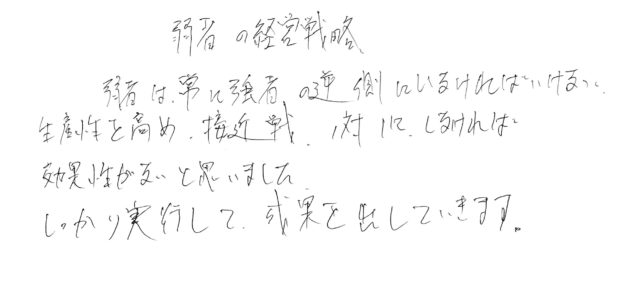 弱者の経営戦略
弱者は、常に強者の逆側にいなければいけない。
生産性を高め、接近戦、1対1にしなければ
効果性がないと思いました
しっかり実行して、成果を出していきます。